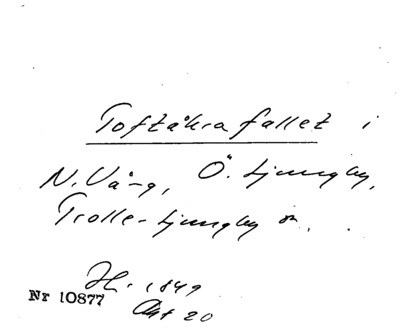 Toftåkrafallet i
N. Vång, Ö. Ljungby,
Trolle-Ljungby sn.
H. 1849
Akt 20
Nr 10877